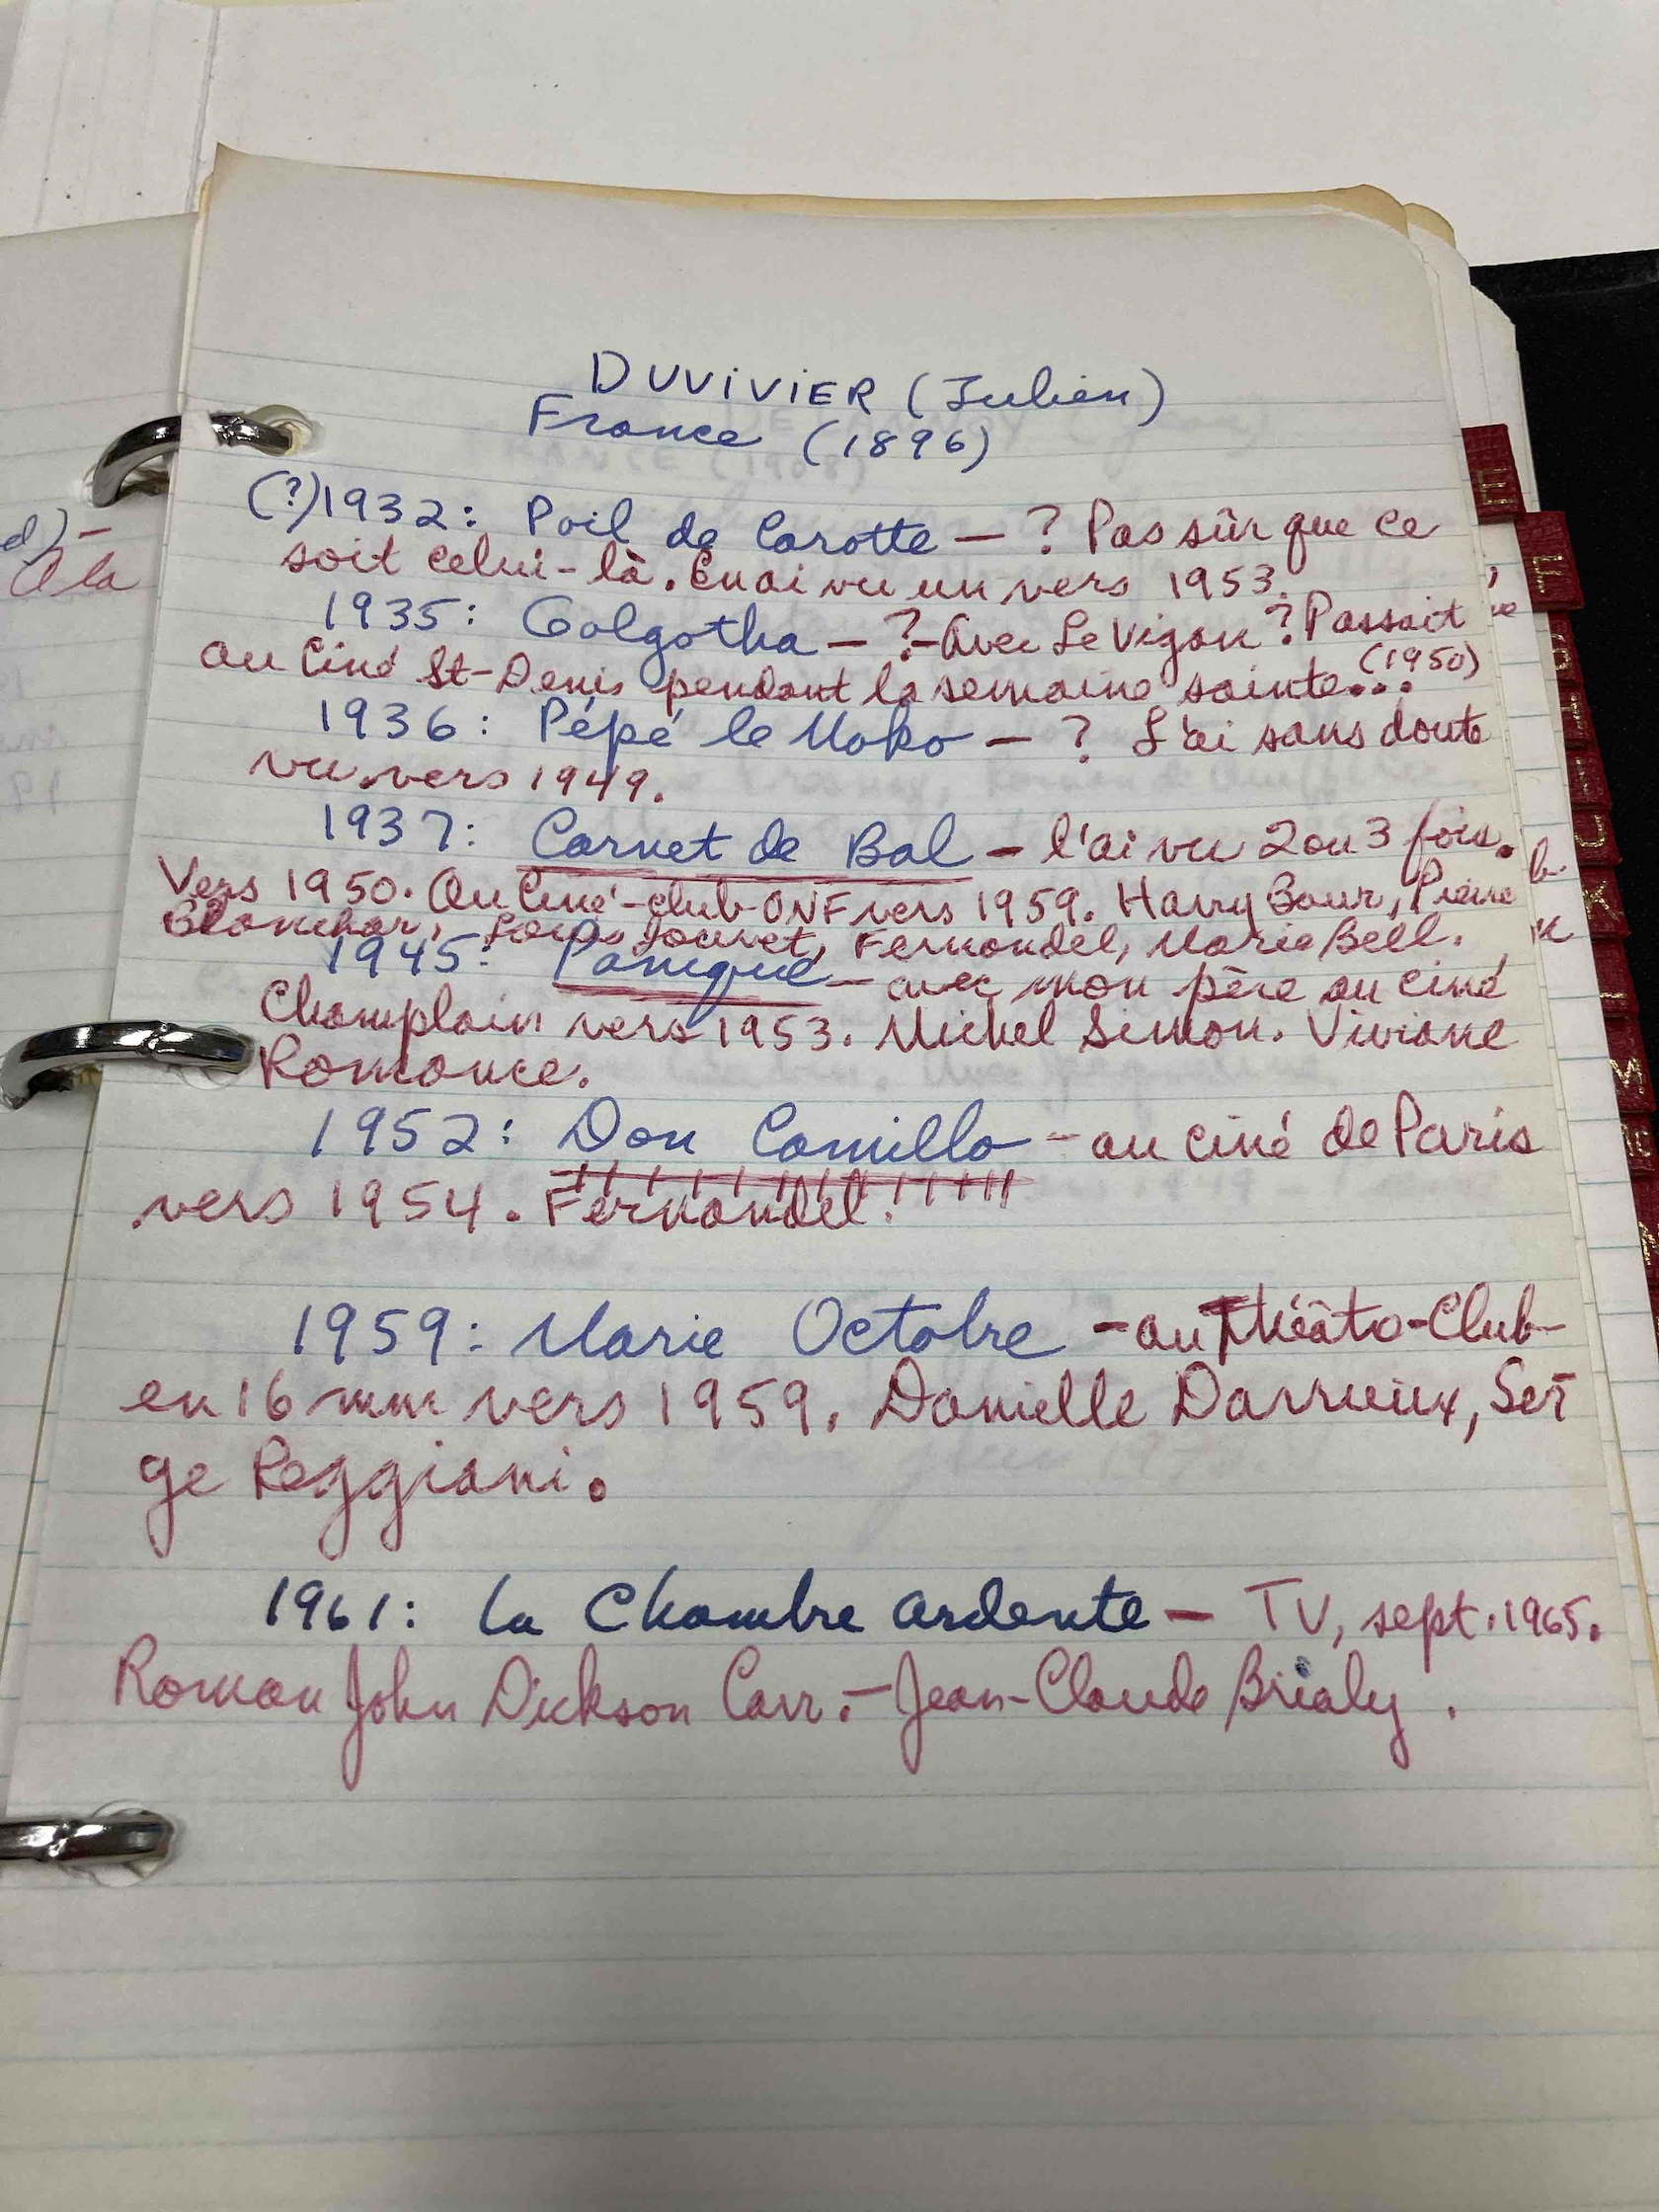 DUVIVIER (Julien)
France (1896)
(?) 1932: Poil de Carotte — ? Pas sûr que ce
soit celui-là. En ai vu un vers 1953.
1935: Golgotha — ? — Avec Le Vigan ? Passait
au Ciné St-Denis pendant la semaine sainte... (1950)
1936: Pépé le Moko — ? L'ai sans doute
vu vers 1949.
1937: Carnet de Bal — l'ai vu 2 ou 3 fois.
Vers 1950. Au Ciné-club-ONF vers 1959. Harry Baur, Pierre
Blanchar, Louis Jouvet, Fernandel, Marie Bell.
1945: Panique — avec mon père au ciné
Champlain vers 1953. Michel Simon. Viviane
Romance.
1952: Don Camillo — au ciné de Paris
vers 1954. Fernandel!
1959: Marie Octobre — au Théâtro-Club
en 16 mm vers 1959. Danielle Darrieux, Ser
ge Reggiani.
1961: La Chambre ardente — TV, sept. 1965.
Roman John Dickson Carr. — Jean-Claude Brialy.
d) —
A la
E
F
K
M